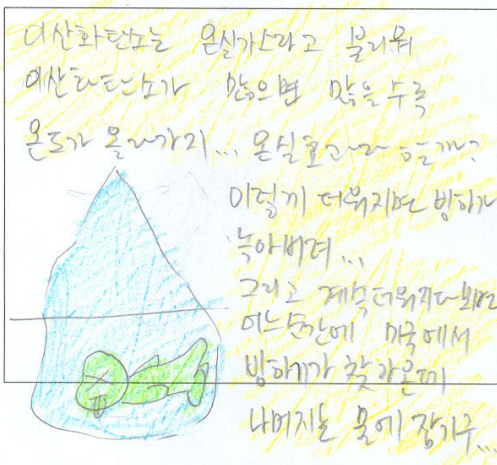 이산화탄소는 온실가스라고 불리워
이산화탄소가 많으면 많을수록
온도가 올라가지... 온실효과라 할까?
이렇게 더워지면 빙하가
녹아버려...
그리고 계속 더워지다보면
어느순간에 미국에서
빙하기가 찾아온데
나머지는 물에 잠기구...